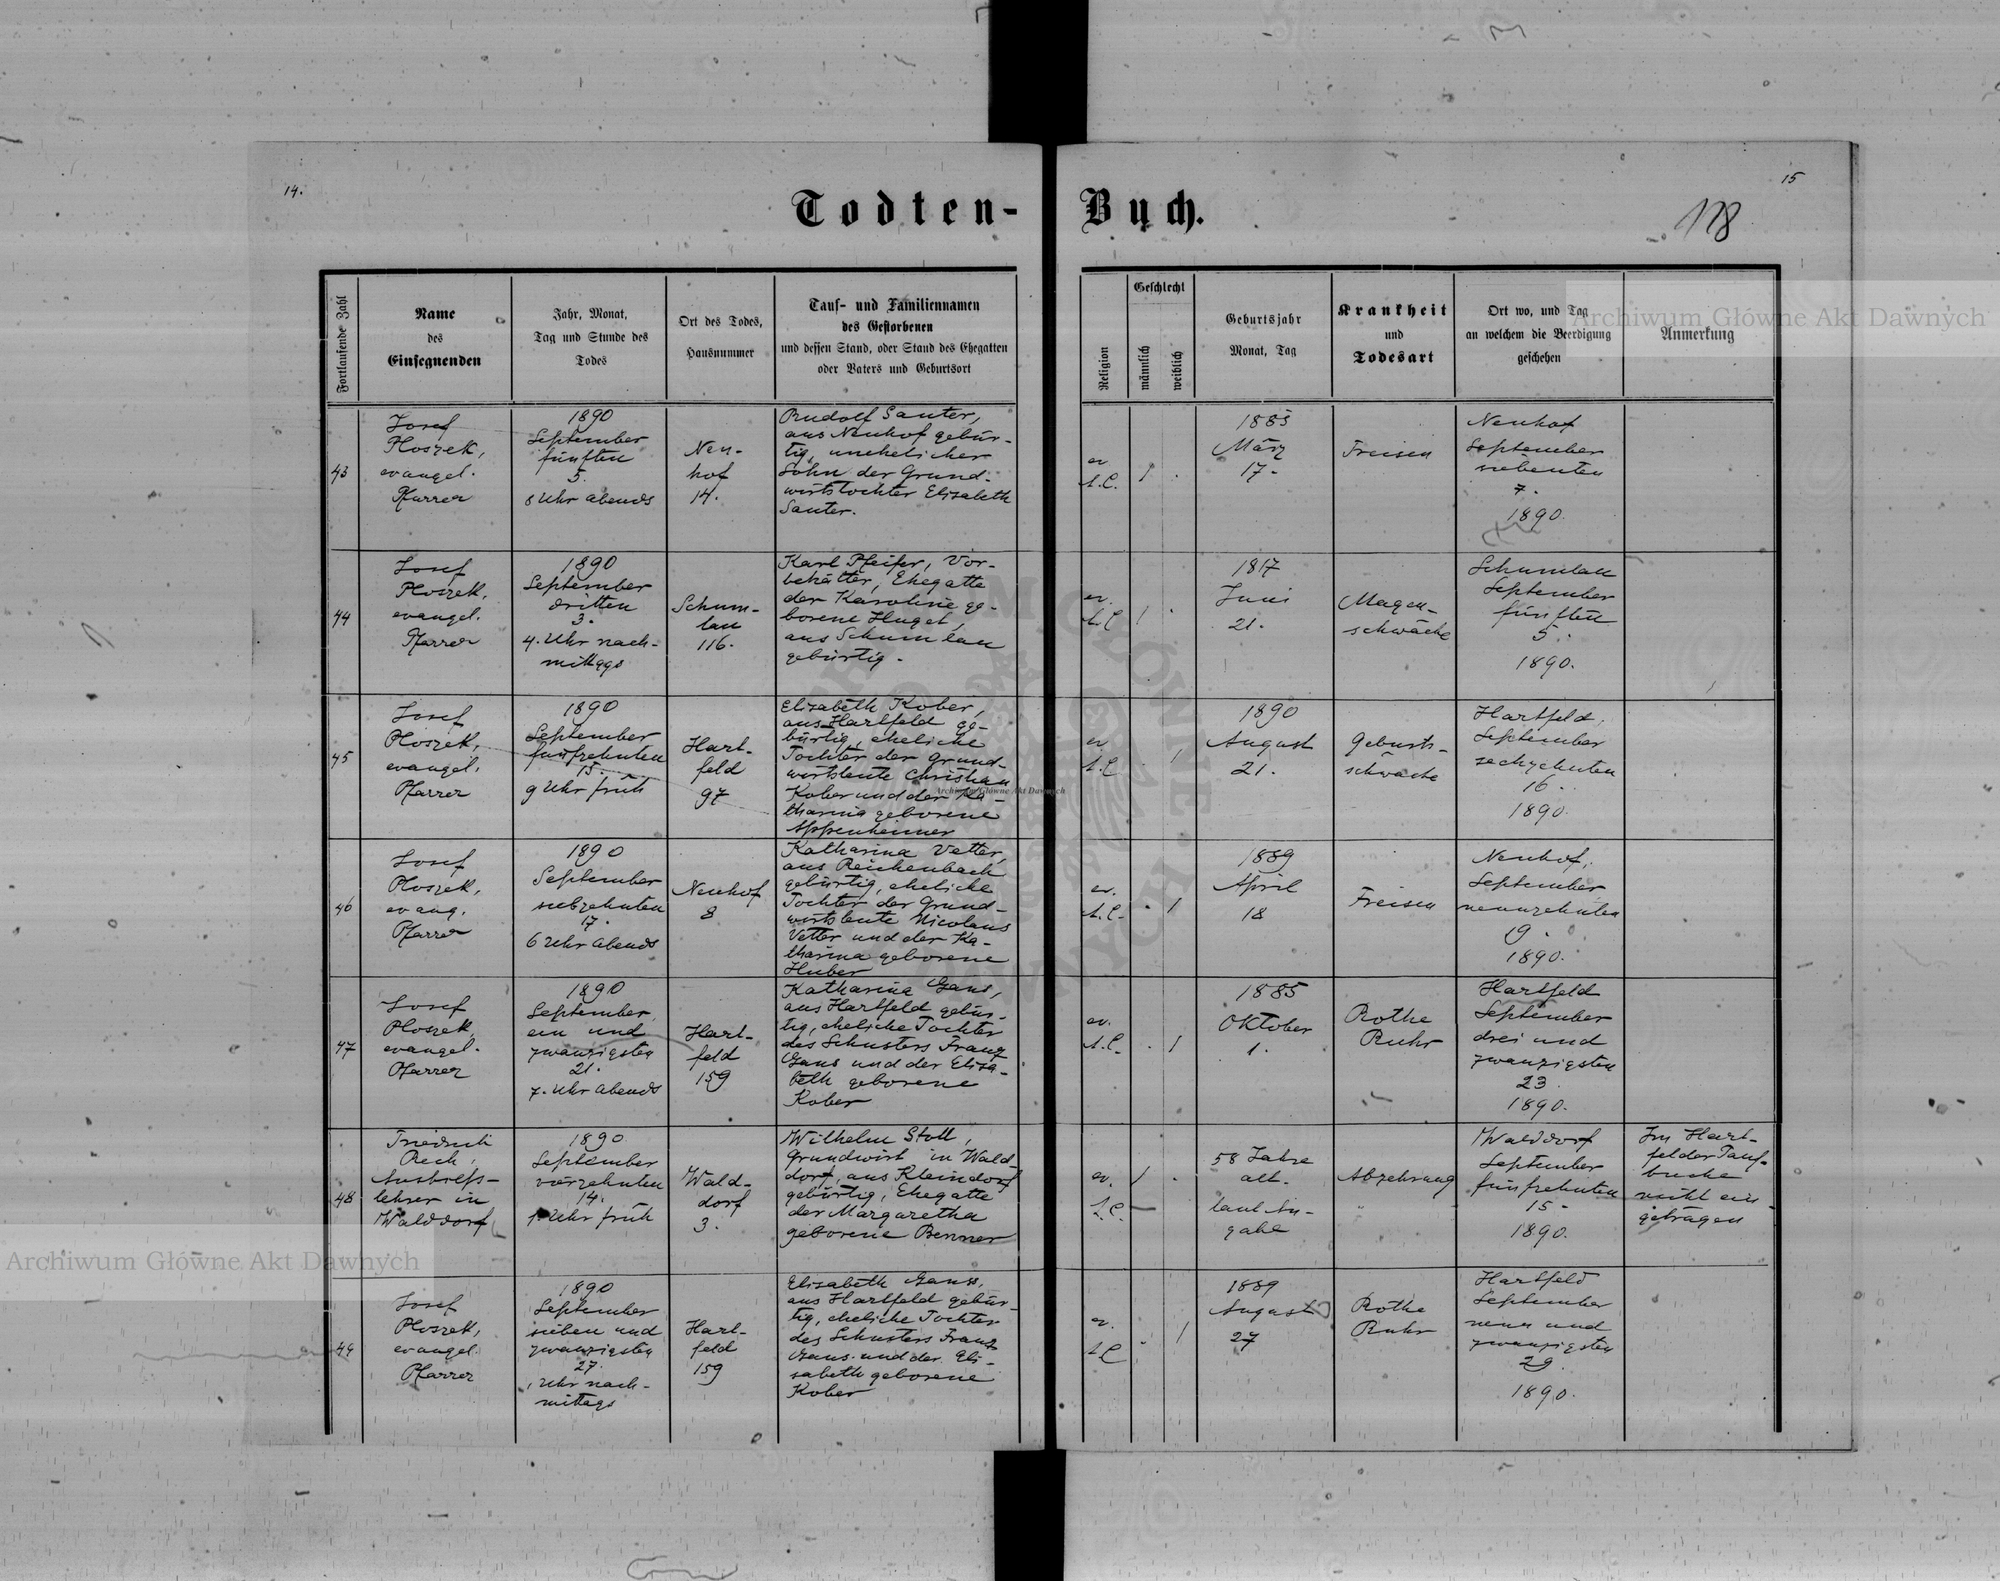 14.
15
Todten-
Buch.
118
Fortlaufende Zahl
Name
des
Einsegnenden
Jahr, Monat,
Tag und Stunde des
Todes
Ort des Todes,
Hausnummer
Tauf- und Familiennamen
des Gestorbenen
und dessen Stand, oder Stand des Ehegatten
oder Vaters und Geburtsort
Religion
Geschlecht
männlich
weiblich
Geburtsjahr
Monat, Tag
Krankheit
und
Todesart
Ort wo, und Tag
an welchem die Beerdigung
geschehen
Anmerkung
43
Josef
Ploszek,
evangel.
Pfarrer
1890
September
fünften
5.
8 Uhr abends
Neu-
hof
14.
Rudolf Sauter,
aus Neuhof gebür-
tig, unehelicher
Sohn der Grund-
wirtstochter Elisabeth
Sauter.
ev.
A.C.
1
1885
März
17.
Freisen
Neuhof
September
siebenten
7.
1890.
44
Josef
Ploszek,
evangel.
Pfarrer
1890
September
dritten
3.
4. Uhr nach-
mittags
Schum-
lau
116.
Karl Pfeifer, Vor-
behälter, Ehegatte
der Karoline ge-
borene Huget,
aus Schumlau
gebürtig.
ev.
A.C.
1
1817
Juni
21.
Magen-
schwäche
Schumlau
September
fünften
5.
1890.
45
Josef
Ploszek,
evangel.
Pfarrer
1890
September
fünfzehnten
15.
9 Uhr früh
Hart-
feld
97
Elisabeth Kober,
aus Hartfeld ge-
bürtig, eheliche
Tochter der Grund-
wirtsleute Christian
Kober und der Ka-
tharina geborene
Oppenheimer
ev.
A.C.
1
1890
August
21.
Geburts-
schwäche
Hartfeld,
September
sechzehnten
16.
1890.
46
Josef
Ploszek,
evang.
Pfarrer
1890
September
siebzehnten
17.
6 Uhr abends
Neuhof
8
Katharina Vetter,
aus Reichenbach
gebürtig, eheliche
Tochter der Grund-
wirtsleute Nicolaus
Vetter und der Ka-
tharina geborene
Huber
ev.
A.C.
1
1889
April
18
Freisen
Neuhof,
September
neunzehnten
19.
1890.
47
Josef
Ploszek,
evangel.
Pfarrer
1890
September,
ein und
zwanzigsten
21.
7. Uhr abends
Hart-
feld
159
Katharina Gans,
aus Hartfeld gebür-
tig, eheliche Tochter
des Schusters Franz
Gans und der Elisa-
beth geborene
Kober
ev.
A.C.
1
1885
Oktober
1.
Rothe
Ruhr
Hartfeld
September
drei und
zwanzigsten
23.
1890.
48
Friedrich
Rech,
Aushilfs-
lehrer in
Walddorf
1890
September
vierzehnten
14.
1 Uhr früh
Wald-
dorf
3.
Wilhelm Stoll,
Grundwirt in Wald-
dorf, aus Kleindorf
gebürtig, Ehegatte
der Margaretha
geborene Benner
ev.
A.C.
1
58 Jahre
alt.
laut An-
gabe
Abzehrung
Walddorf
September
fünfzehnten
15.
1890.
Im Hart-
felder Tauf-
buche
nicht ein-
getragen
49
Josef
Ploszek,
evangel.
Pfarrer
1890
September
sieben und
zwanzigsten
27.
1 Uhr nach-
mittags
Hart-
feld
159
Elisabeth Gans,
aus Hartfeld gebür-
tig, eheliche Tochter
des Schusters Franz
Gans und der Eli-
sabeth geborene
Kober
ev.
A.C.
1
1889
August
27
Rothe
Ruhr
Hartfeld
September
neun und
zwanzigsten
29.
1890.
Archiwum Główne Akt Dawnych
Archiwum Główne Akt Dawnych
Archiwum Główne Akt Dawnych